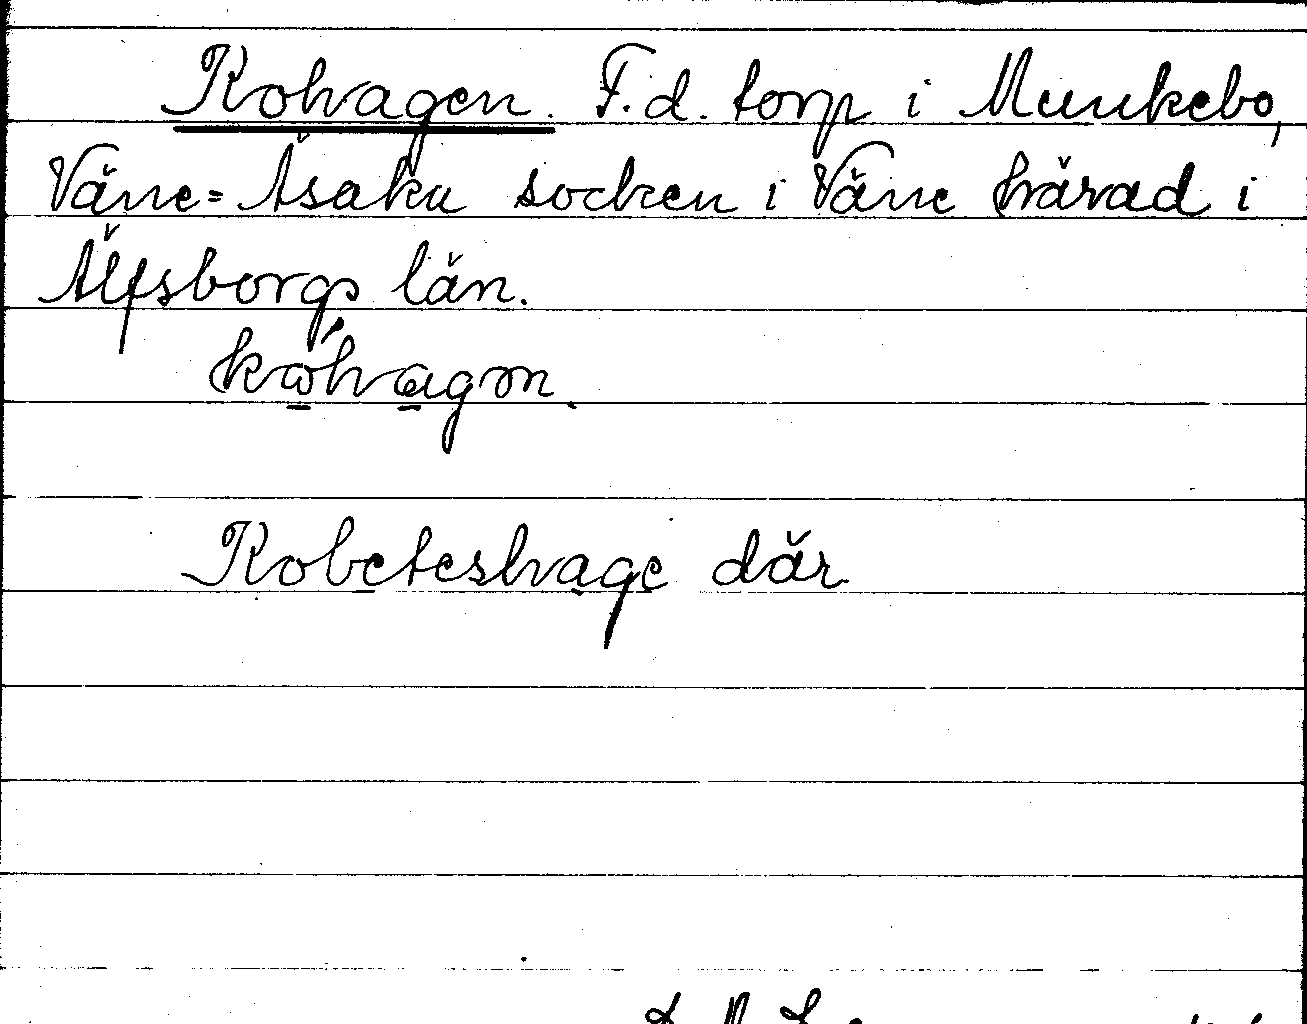 Kohagen. F.d. torp i Munkebo,
Väne=Åsaka socken i Väne härad i
Älfsborgs län.
Kobeteshage där